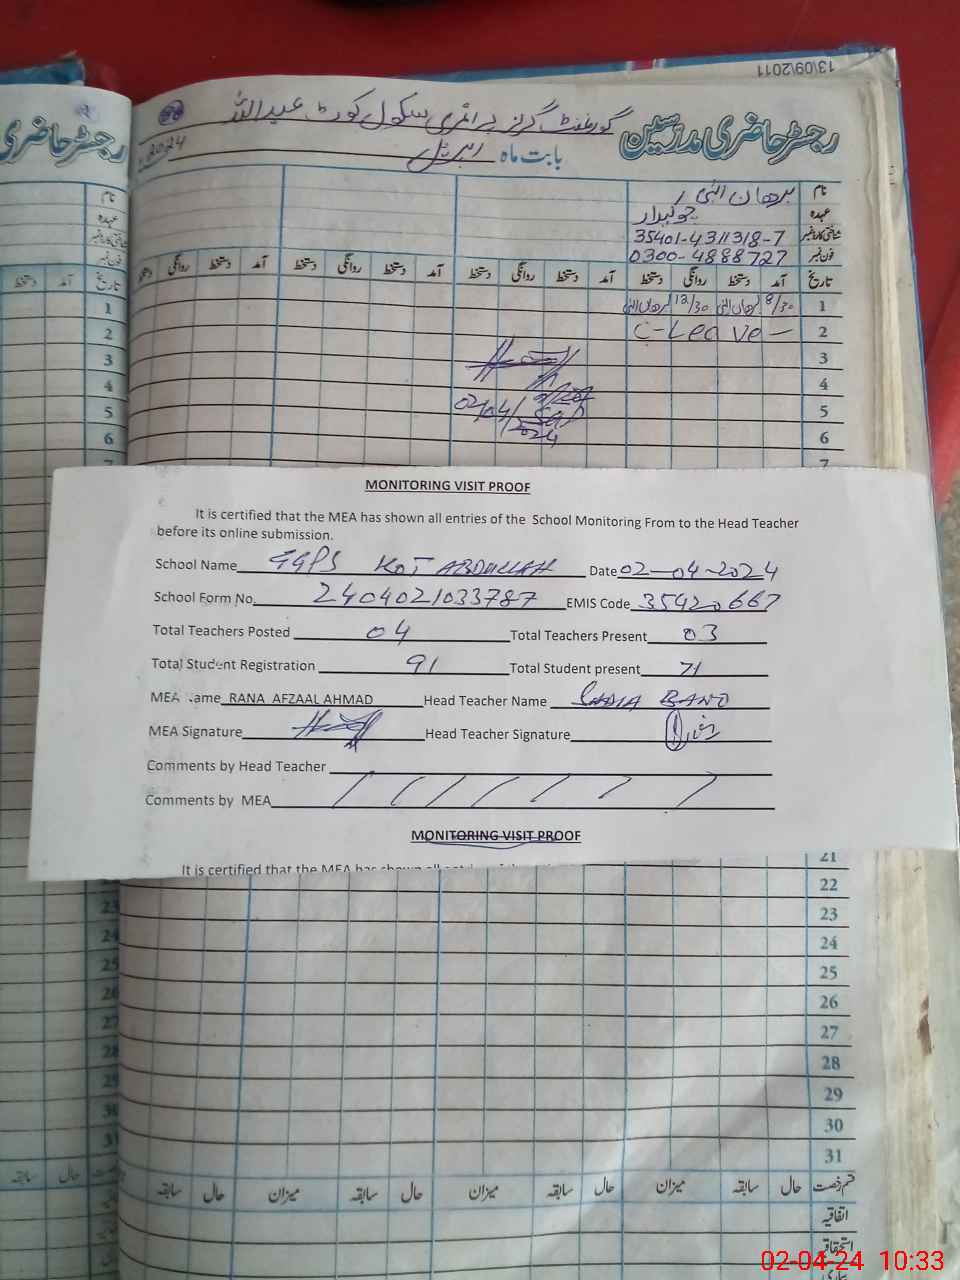 13\09\2011
گورنمنٹ گرلز پرائمری سکول کوٹ عبداللہ
رجسٹر حاضری مدرسین
بابت ماہ اپریل 2024
رجسٹر حاضری
نام برھان الٰہی
عہدہ چوکیدار
شناختی کارڈ نمبر 35401-4311318-7
فون نمبر 0300-4888727
تاریخ آمد دستخط روانگی دستخط آمد دستخط روانگی دستخط آمد دستخط روانگی دستخط آمد دستخط روانگی دستخط
1 8/30 برھان الٰہی 12/30 برھان الٰہی
2 C-Leave
3
4
5
02/04/2024
6
7
MONITORING VISIT PROOF
It is certified that the MEA has shown all entries of the School Monitoring From to the Head Teacher
before its online submission.
School Name GGPS KOT ABDULLAH Date 02-04-2024
School Form No. 2404021033787 EMIS Code 35420667
Total Teachers Posted 04 Total Teachers Present 03
Total Student Registration 91 Total Student present 71
MEA Name RANA AFZAAL AHMAD Head Teacher Name SADIA BANO
MEA Signature Head Teacher Signature
Comments by Head Teacher
Comments by MEA
MONITORING VISIT PROOF
It is certified that the MEA has shown all
21
22
23
24
25
26
27
28
29
30
31
قسم رخصت حال سابقہ میزان حال سابقہ میزان حال سابقہ میزان حال سابقہ
اتفاقیہ
استحقاقی
02-04-24 10:33